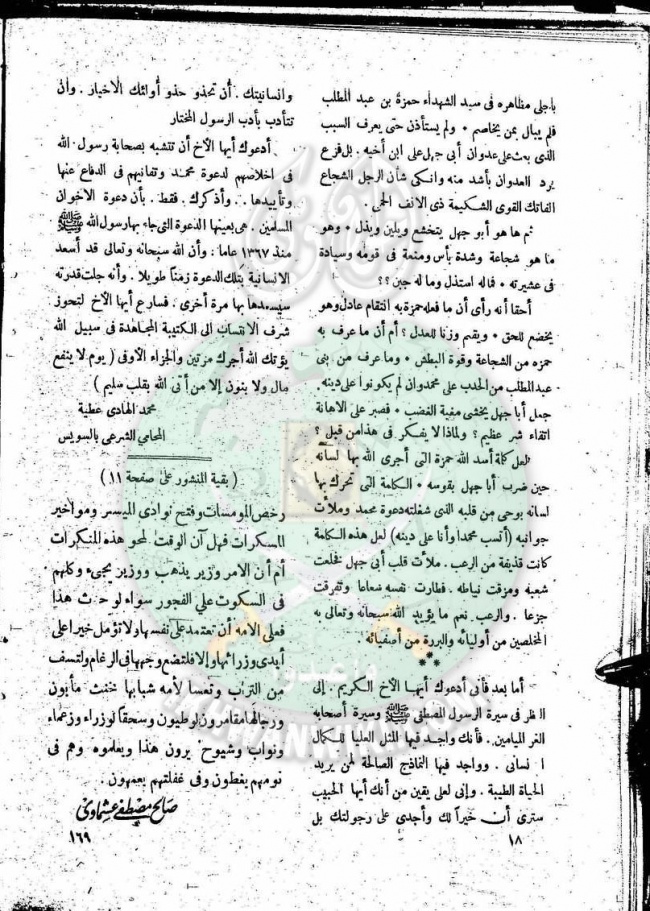 بأجلى مظاهره فى سيد الشهداء حمزة بن عبد المطلب
فلم يبال بمن يخاصم • ولم يستأذن حتى يعرف السبب
الذى بعث على عدوان أبى جهل على ابن أخيه . بل فزع
يرد العدوان بأشد منه وانكى شأن الرجل الشجاع
الفاتك القوى الشكيمة ذى الانف الحمى .
ثم ها هو أبو جهل يتخشع ويلين ويذل • وهو
ما هو شجاعة وشدة بأس ومنعة فى قومه وسيادة
فى عشيرته • فماله استذل وما له جبن ؟؟
أحقا أنه رأى أن ما فعله حمزة به انتقام عادل وهو
يخضع للحق • ويقيم وزنا للعدل ؟ أم أن ما عرف به
حمزه من الشجاعة وقوة البطش • وما عرف من بنى
عبد المطلب من الحدب على محمد وان لم يكونوا على دينه.
جعل أبا جهل يخشى مغبة الغضب • فصبر على الاهانة
اتقاء شر عظيم ؟ ولماذا لا يفكر فى هذا من قبل ؟
لعل كلمة أسد الله حمزة التى أجرى الله بها لسانه
حين ضرب أبا جهل بقوسه • الكلمة التى تحرك بها
لسانه بوحى من قلبه الذى شغلته دعوة محمد وملأت
جوانبه ( أتسب محمدا وأنا على دينه ) لعل هذه الكلمة
كانت قذيفة من الرعب . ملأت قلب أبى جهل فخلعت
شعبه ومزقت نياطه . فطارت نفسه شعاعا وتفرقت
جزعا . والرعب . نعم ما يؤيد الله سبحانه وتعالى به
المخلصين من أوليائه والبررة من أصفيائه .
* * *
أما بعد فأنى أدعوك أيهـا الآخ الكريم . إلى
النظر فى سيرة الرسول المصطفى ﷺ وسيرة أصحابه
الغر الميامين . فأنك واجد فيها المثل العليا للكمال
الانسانى . وواجد فيها النماذج الصالحة لمن يريد
الحياة الطيبة . وإنى لعلى يقين من أنك أيها الحبيب
سترى أن خيراً لك وأجدى على رجولتك بل
١٨
وانسانيتك . أن تحذو حذو أولئك الاخيار . وان
تتأدب بأدب الرسول المختار
أدعوك أيها الآخ أن تتشبه بصحابة رسول الله
فى اخلاصهم لدعوة محمد وتفانيهم فى الدفاع عنها
وتأييدها . وأذكرك . فقط . بأن دعوة الاخوان
المسلمين . هى بعينها الدعوة التى جاء بها رسول الله ﷺ
منذ ١٣٦٧ عاما : وأن الله سبحانه وتعالى قد أسعد
الانسانية بتلك الدعوة زمنًا طويلا . وأنه جلت قدرته
سيسعدها بها مرة أخرى . فسارع أيها الآخ لتحوز
شرف الانتساب الى الكتيبة المجاهدة فى سبيل الله
يؤتك الله أجرك مرتين والجزاء الأوفى ( يوم لا ينفع
مال ولا بنون إلا من أتى الله بقلب سليم )
محمد الهادى عطية
المحامي الشرعى بالسويس
( بقية المنشور على صفحة ١١ )
رخص المومسات وفتح نوادى الميسر ومواخير
المسكرات فهل آن الوقت لمحو هذه المنكرات
أم أن الامر وزير يذهب ووزير يجىء وكلهم
فى السكوت علي الفجور سواء لو حدث هذا
فعلى الامه أن تعتمد على نفسها ولا تؤمل خيرا على
أيدى وزرائها وإلا فلتضع وجهها فى الرغام ولتسف
من التراب وتعسا لأمه شبابها خنث مأبون
ورجالها مقامرون لوطيون وسحقا لوزراء وزعماء
ونواب وشيوخ يرون هذا ويعلموه وهم فى
نومهم يغطون وفى غفلتهم يعمهون .
صالح مصطفى عشماوى
١٦٩